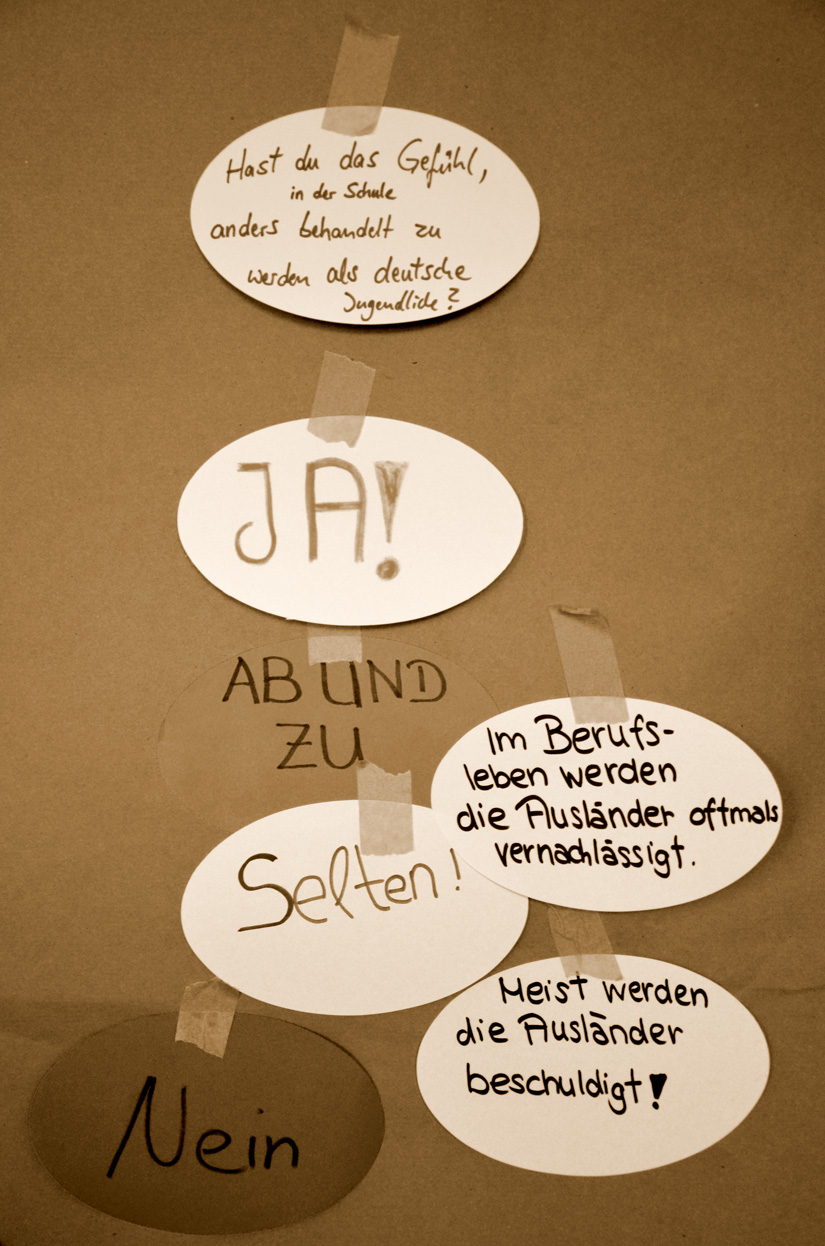 Hast du das Gefühl,
in der Schule
anders behandelt zu
werden als deutsche
Jugendliche?
JA!
AB UND
ZU
Im Berufs-
leben werden
die Ausländer oftmals
vernachlässigt.
Selten!
Meist werden
die Ausländer
beschuldigt!
Nein